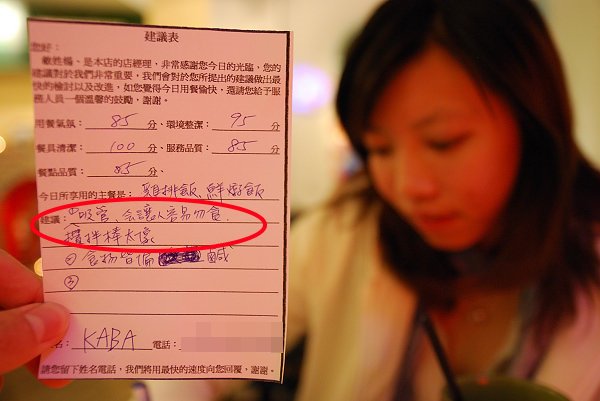 建議表
您好：
敝姓楊、是本店的店經理，非常感謝您今日的光臨，您的
建議對於我們非常重要，我們會對於您所提出的建議做出最
快的檢討以及改進，如您覺得今日用餐愉快，還請您給予服
務人員一個溫馨的鼓勵，謝謝。
用餐氣氛：85分、環境整潔：95分
餐具清潔：100分、服務品質：85分
餐點品質：85分、
今日所享用的主餐是：雞排飯、鮮嫩飯
建議：①吸管、會讓人容易勿食、
攪拌棒太像
②食物皆偏 鹹
③
名：KABA 電話：
請您留下姓名電話，我們將用最快的速度向您回覆，謝謝。